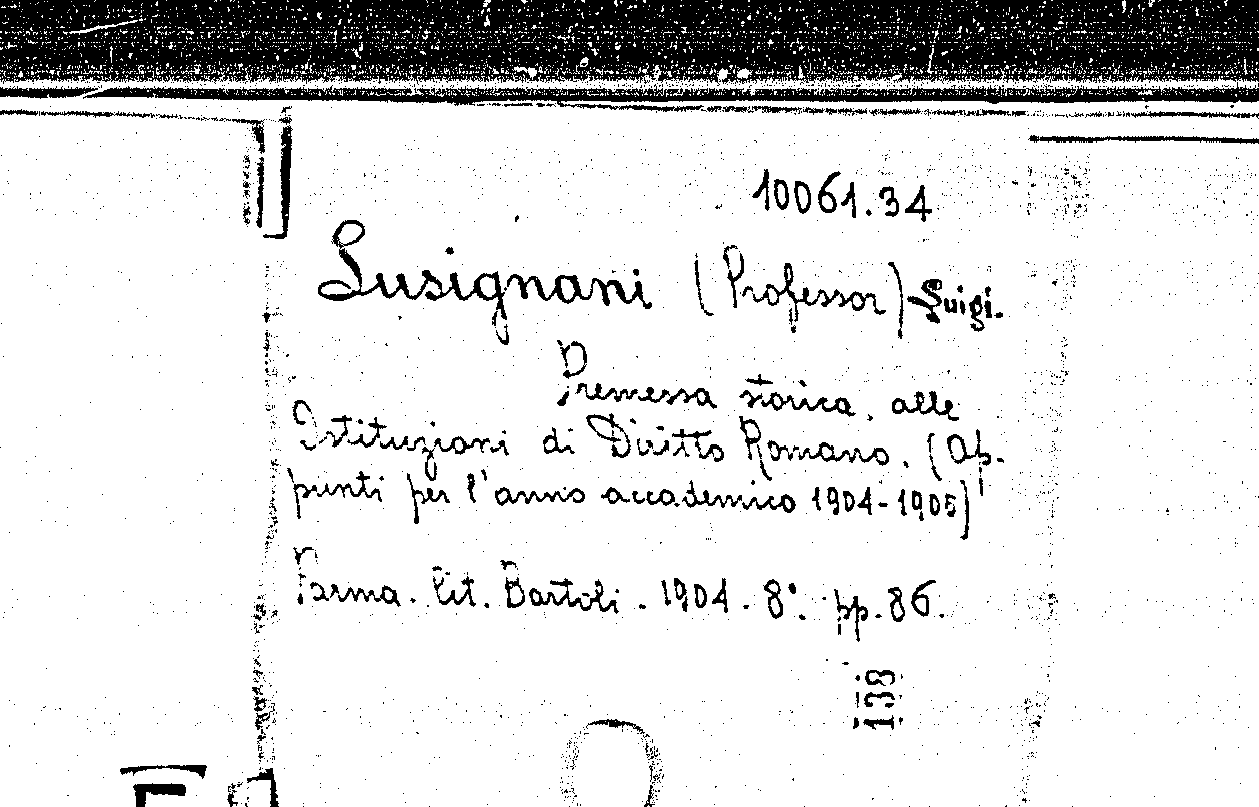 10061.34
Lusignani (Professor) Luigi.
Premessa storica. alle
Istituzioni di Diritto Romano. (Ap.
punti per l'anno accademico 1904-1905)
Parma. lit. Bartoli. 1904. 8°. pp. 86.
138